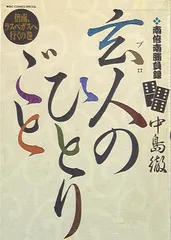 BIG COMICS SPECIAL
倍南、ラスベガスへ行くの巻
南倍南勝負録
プロ
玄人の
ひとり
ごと
中島徹